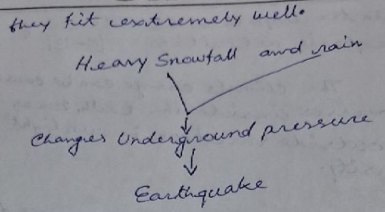 they fit extremely well.
Heavy Snowfall and rain
Changes Underground pressure
Earthquake